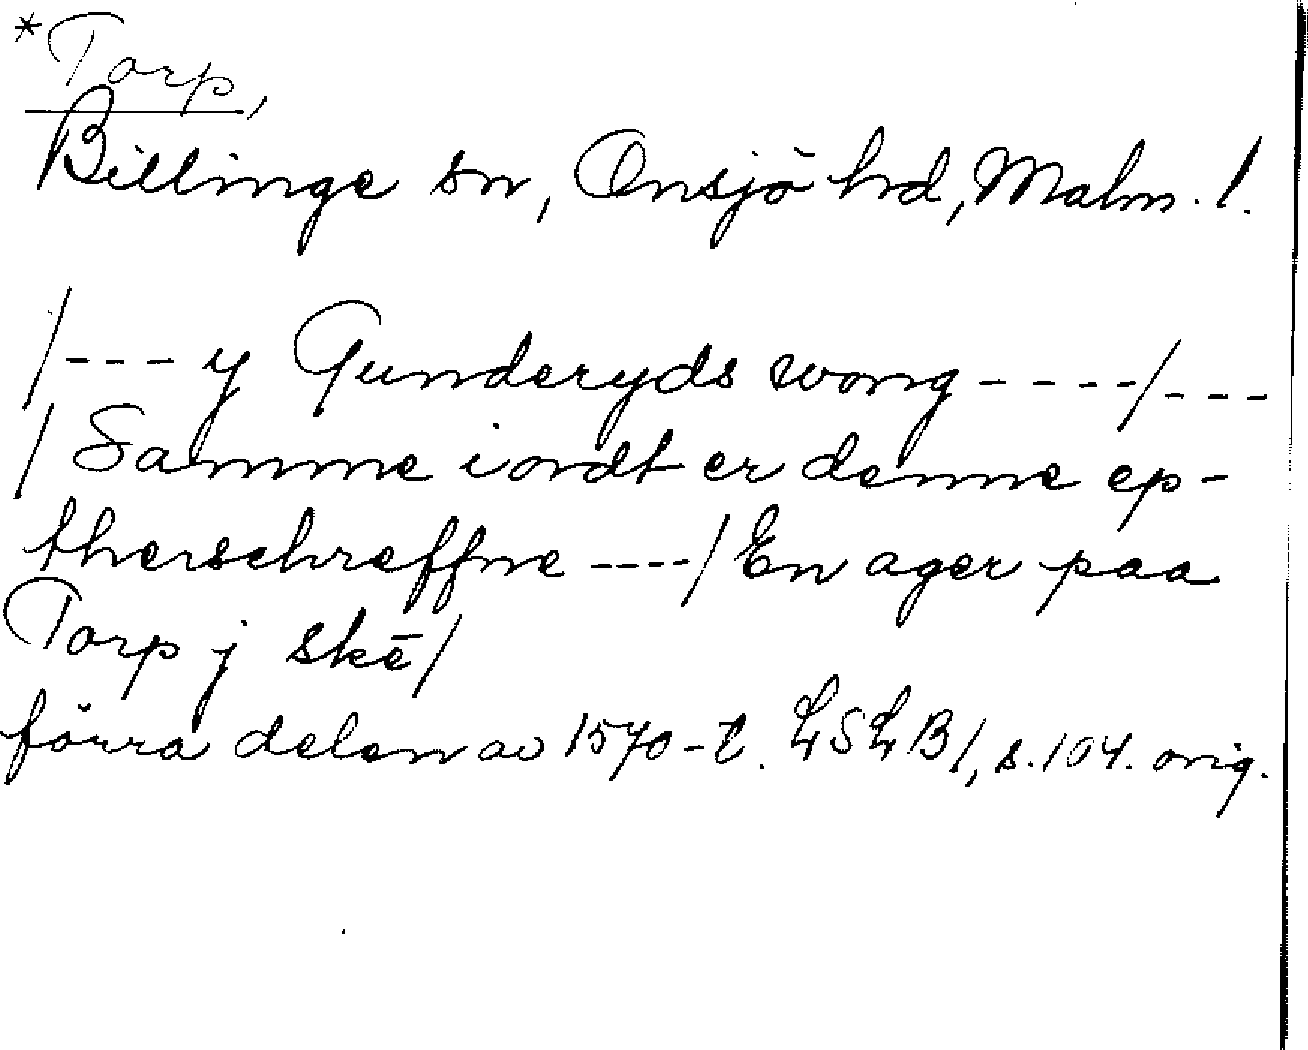 *Torp,
Billinge sn, Onsjö hd, Malm. l.
/--- y Gunderyds wong ----/---
/ Samme iordt er denne ep-
therschreffne ----/ En ager paa
Torp j skē/
förra delen av 1570-t. LSLB1, s. 104. orig.